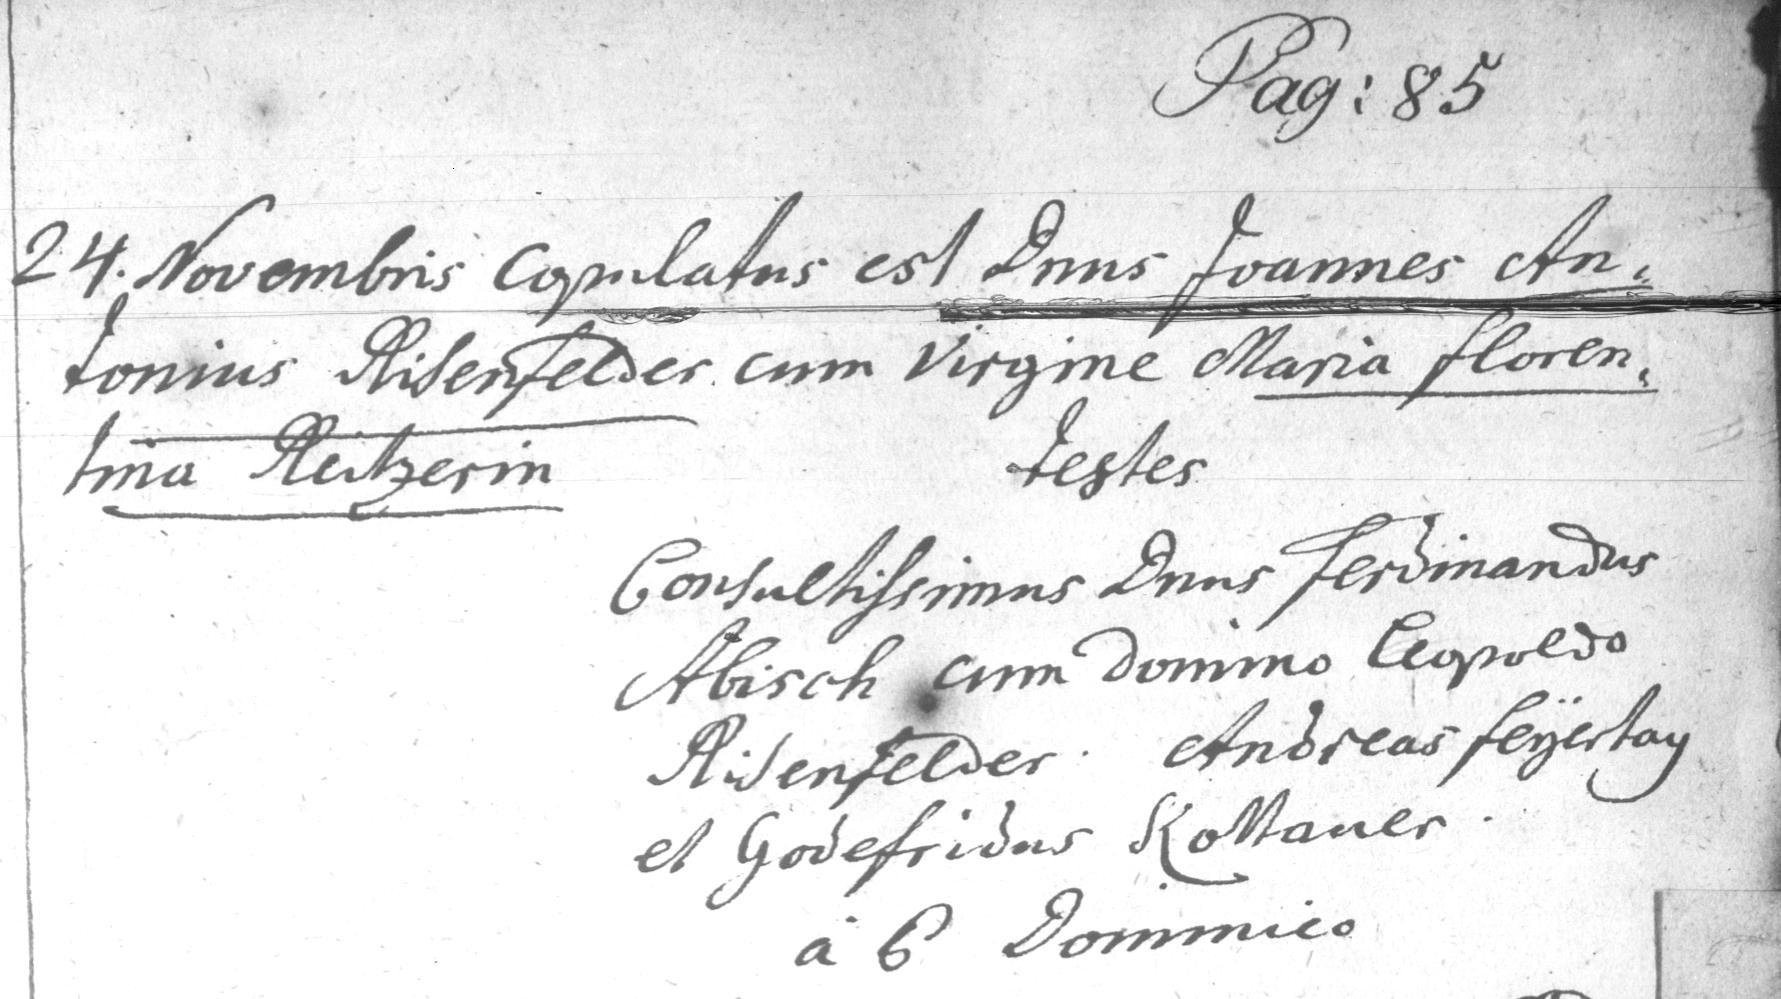 Pag: 85
24. Novembris copulatus est Dnus Joannes An,
tonius Risenfelder cum virgine Maria floren,
tina Reitzerin testes
Consultissimus Dnus Ferdinandus
Abisch cum domino Leopoldo
Risenfelder. Andreas feÿertag
et Godefridus Kottauer.
à P Dominico